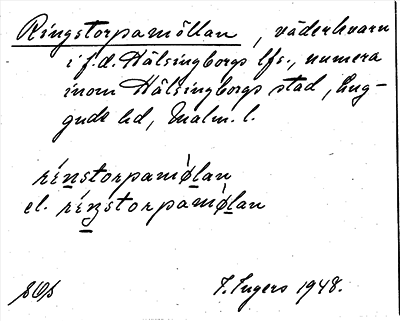 Ringstorpamöllan, väderkvarn
i f.d. Hälsingborgs lfs., numera
inom Hälsingborgs stad, Lug-
gude hd, Malm. l.
rénstorpamø̀lan
el. réŋstorpamø̀lan
SOS
I. Ingers 1948.